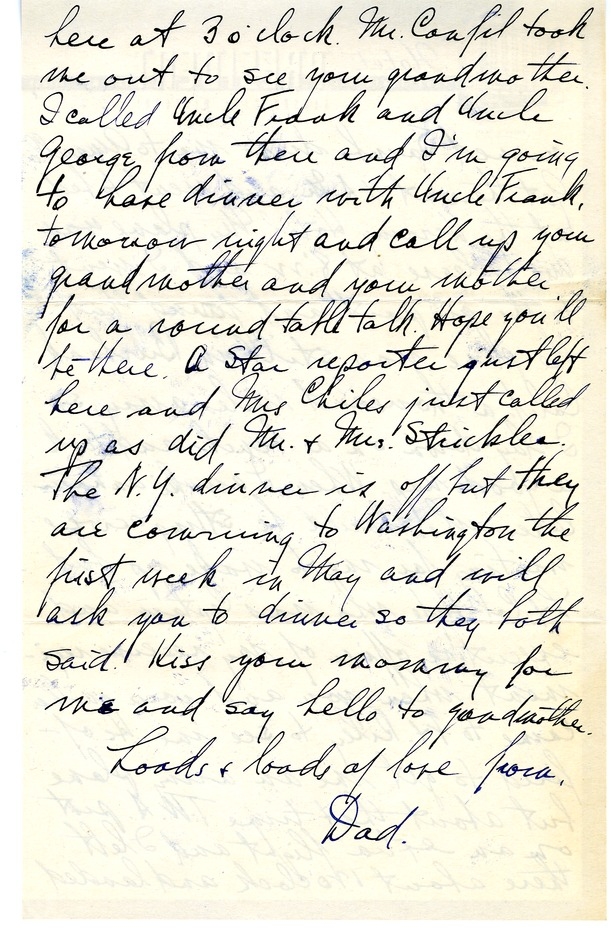 here at 3 o'clock. Mr. Canfil took
me out to see your grandmother.
I called Uncle Frank and Uncle
George from there and I'm going
to have dinner with Uncle Frank,
tomorrow night and call up your
grandmother and your mother
for a round table talk. Hope you'll
be there. A Star reporter just left
here and Mrs Chiles just called
up as did Mr. & Mrs. Strickler.
The N.Y. dinner is off but they
are comming to Washington the
first week in May and will
ask you to dinner so they both
said. Kiss your mommy for
me and say hello to grandmother.
Loads & loads of love from,
Dad.